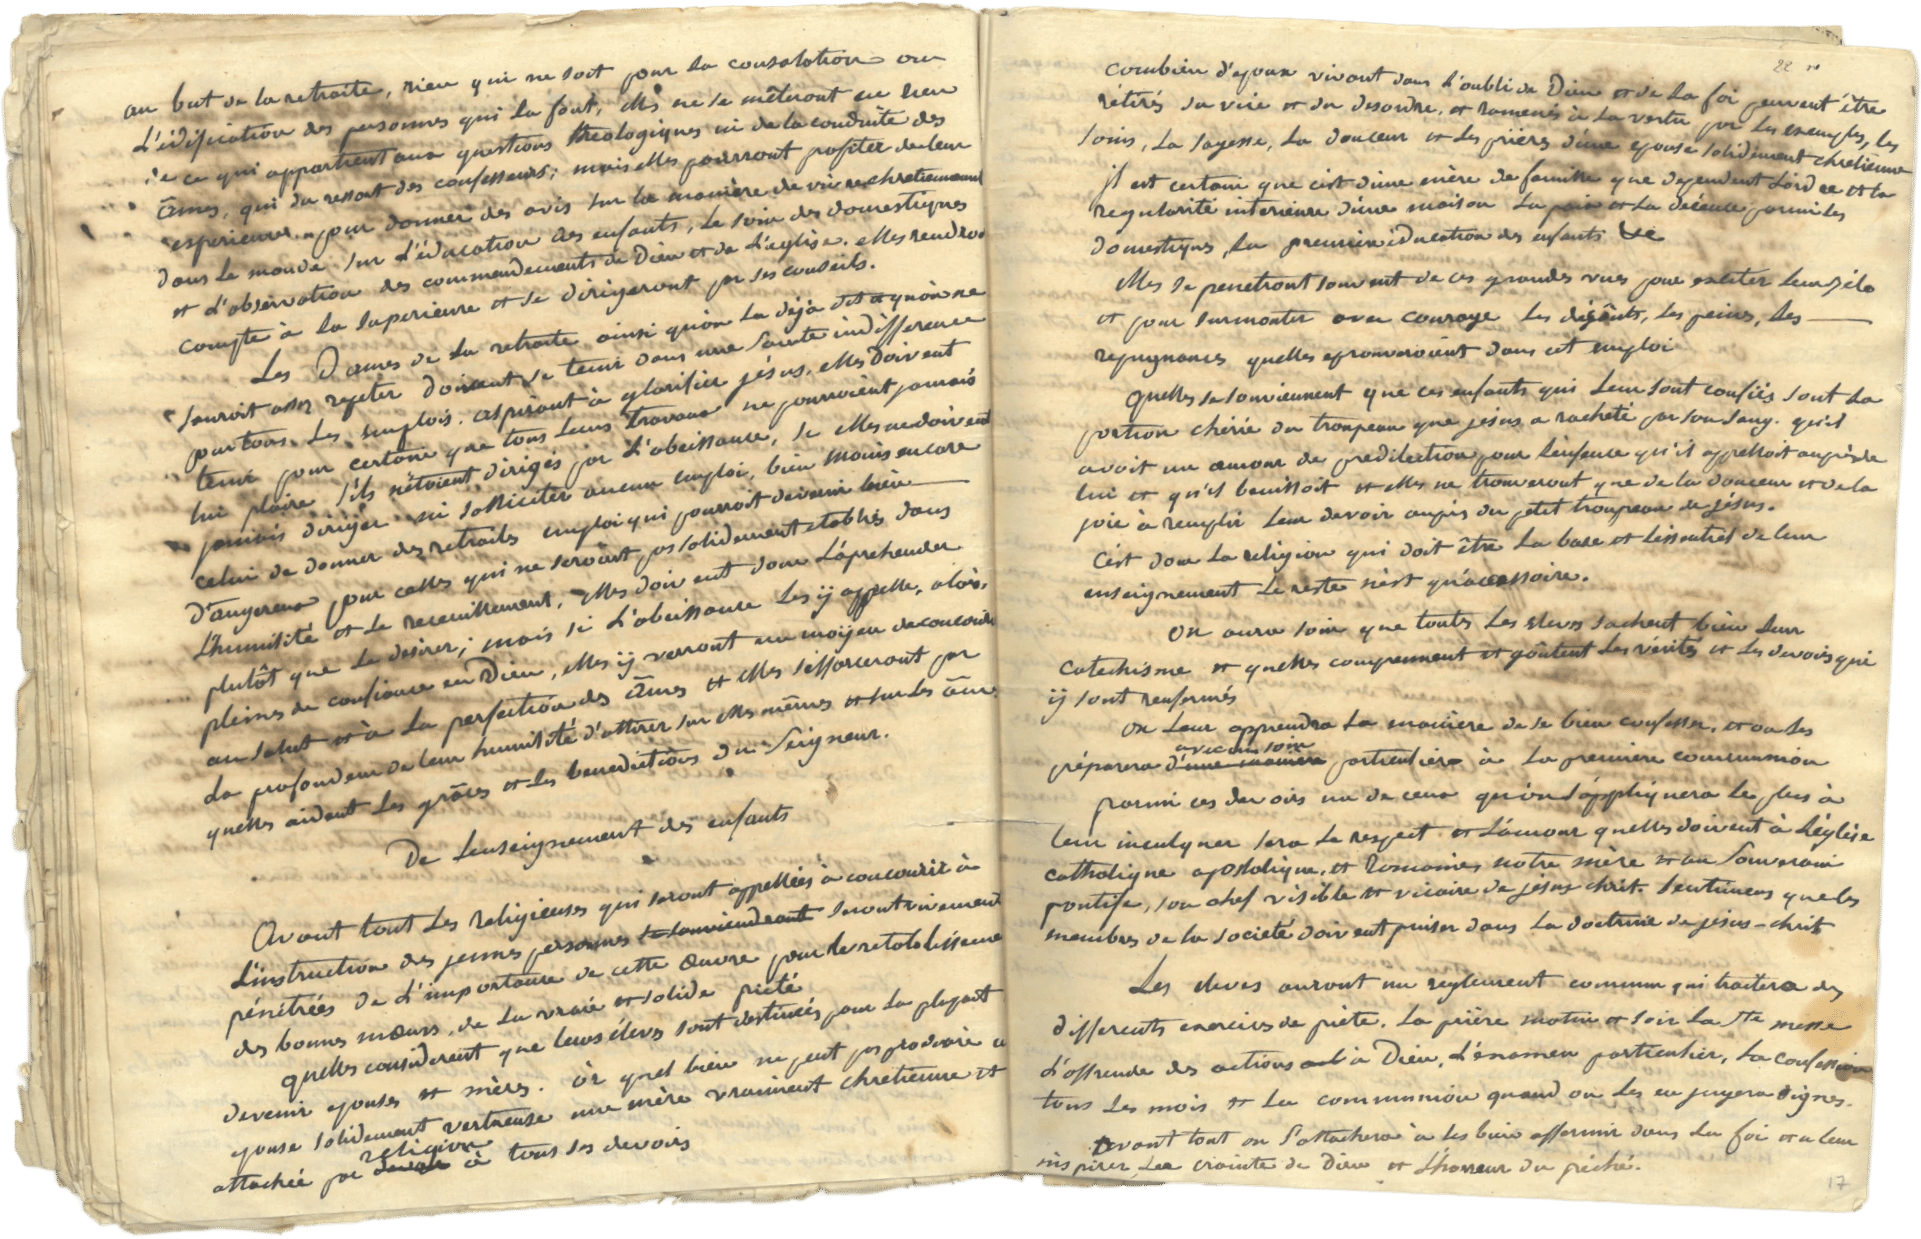 au but de la retraite, rien qui ne soit pour la consolation ou
l'édification des personnes qui la font, elles ne se mêleront en rien
de ce qui appartient aux questions theologiques ni de la conduite des
âmes, qui du ressort des confesseurs; mais elles pourront profiter de leur
experience pour donner des avis sur la manière de vivre chretiennement
dans le monde sur l'éducation des enfants, le soin des domestiques
et l'observation des commendements de Dieu et de l'eglise. elles rendront
compte à la superieure et se dirigeront par ses conseils.
Les Dames de la retraite ainsi qu'on la déjà dit et qu'on ne
sauroit assez repeter doivent se tenir dans une sainte indifference
pour tous les emplois. aspirant à glorifier jésus. elles doivent
tenir pour certain que tous leurs travaux ne pourroient jamais
lui plaire s'ils n'étoient dirigés par l'obeissance, si elles ne doivent
jamais diriger ni solliciter aucun emploi, bien moins encore
celui de donner des retraites emploi qui pourroit devenir bien
d'angereux pour celles qui ne seroient pas solidement etablies dans
l'humilité et le receuillement, elles doivent donc l'aprehender
plutôt que le desirer; mais si l'obeissance les ij appelle, alors,
pleines de confiance en Dieu, elles ij verront un moijen de concourir
au salut et à la perfection des âmes et elles s'efforceront par
la profondeur de leur humilité d'attirer sur elles mêmes et sur les âmes
quelles aident les grâces et les benedictions du Seigneur.
De lenseignement des enfants
Avant tout les religieuses qui seront appellées à concourir à
l'instruction des jeunes personnes se souviendront seront vivement
pénétrées de l'importance de cette œuvre pour le retablissement
des bonnes mœurs, de la vraie et solide piété
quelles considerent que leurs éleves sont destinées pour la plupart
devenir epouses et mères. òr quel bien ne peut pas produire u
epouse solidement vertueuse une mère vraiment chretienne et
religion
attachée par à tous ses devoirs
22
combien d'epoux vivant dans l'oubli de Dieu et de la foi peuvent être
rétirés du vice et du desordre, et ramenés à la vertu par les exemples, les
soins, la sagesse, la douceur et les prières d'une epouse solidement chretienne
il est certain que c'est d'une mère de famille que dependent l'ordre et la
regularité interieure d'une maison la paix et la décence parmi les
domestiques, la premiere éducation des enfants &c
elles se penetront souvent de ces grandes vues pour exciter leur zéle
et pour surmonter avec courage les dégôuts, les peines, les
repugnances quelles eprouveroient dans cet emploi
quelles se souviennent que ces enfants qui leur sont confiés sont la
portion chérie du troupeau que jésus a racheté par son sang. qu'il
avoit un amour de predilection pour l'enfance qu'il appelloit auprès de
lui et qu'il benissoit et elles ne trouveront que de la douceur et de la
joie à remplir leur devoir aupès du petit troupeau de jésus.
C'est donc la religion qui doit être la base et lessentiel de leur
enseignement le reste n'est qu'accessoire.
on aura soin que toutes les eleves sachent bien leur
catechisme et quelles comprennent et goûtent les vérités et les devoirs qui
ij sont renfermés
on leur apprendra la manière de se bien confesser, et on les
avec un soin
préparera d'une maniere particulier à la première communion
parmi ces devoirs un de ceux qu'on s'appliquera le plus à
leur inculquer sera le respect et l'amour quelles doivent à l'église
catholique apostolique, et Romaine, notre mère et au Souverain
pontife, son chef visible et vicaire de jésus christ. sentimens que les
membres de la societé doivent puiser dans la doctrine de jésus-christ
Les eleves auront un reglement commun qui traitera des
differents exercices de piété. la prière matin et soir la Ste messe
l'offrende des actions à Dieu, l'examen particulier, la confession
tous les mois et la communion quand on les en jugera dignes.
Avant tout on s'attachera à les bien affermir dans la foi et a leur
inspirer la crainte de Dieu et l'horreur du péché.
17